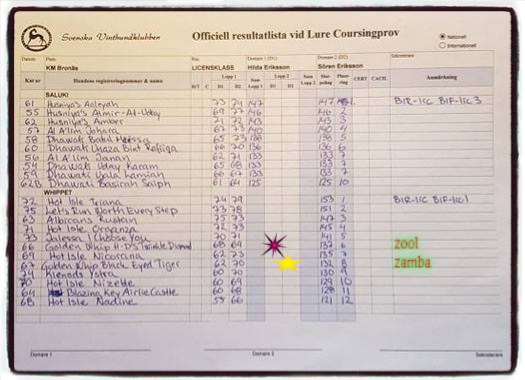 Svenska Vinthundklubben
Officiell resultatlista vid Lure Coursingprov
Nationell
Internationell
KM Bronäs LICENSKLASS
Domare 1 (D1) Hilda Eriksson
Domare 2 (D2) Sören Eriksson
Kat nr Hundens registreringsnummer & namn H/T C Lopp 1 D1 D2 Sum Lopp 1 Lopp 2 D1 D2 Sum Lopp 2 CERT CACIL Anmärkning
SALUKI
61 Husniya's Aaleyah 73 74 147 147 1 BIR-LC BIF-LC 3
55 Husniya's Almir-At-Uday 69 77 146 146 2
62 Husniya's Amber 71 72 143 143 3
57 Al A'lim Johara 67 73 140 140 4
58 Dhawati 65 73 138 138 5
60 Dhawati 66 70 136 136 6
56 Al A'lim Janan 62 71 133 133 7
54 Dhawati Uday Karam 65 68 133 133 7
59 Dhawati 66 67 133 133 7
62B Dhawati Basirah Salph 61 64 125 125 10
WHIPPET
72 Hot Isle Triana 74 79 153 1 BIR-LC BIF-LC 1
75 Let's Run Forth Every Step 73 78 151 2
63 Albicans 147 3
71 Hot Isle Organza 72 73 145 4
73 Jalessa I Choose You 70 71 141 5
66 Golden Whip H-D's Twinkle Diamond 68 69 137 6 zool
69 Hot Isle Nicorcina 62 73 135 7
67 Golden Whip Black Eyed Tiger 62 70 132 8 zamba
74 60 70 130 9
70 Hot Isle Nizette 60 69 129 10
64 Blazing Key Airlie Castle 60 68 128 11
68 Hot Isle Nadine 55 66 121 12
Domare 1 Domare 2 Sekreterare